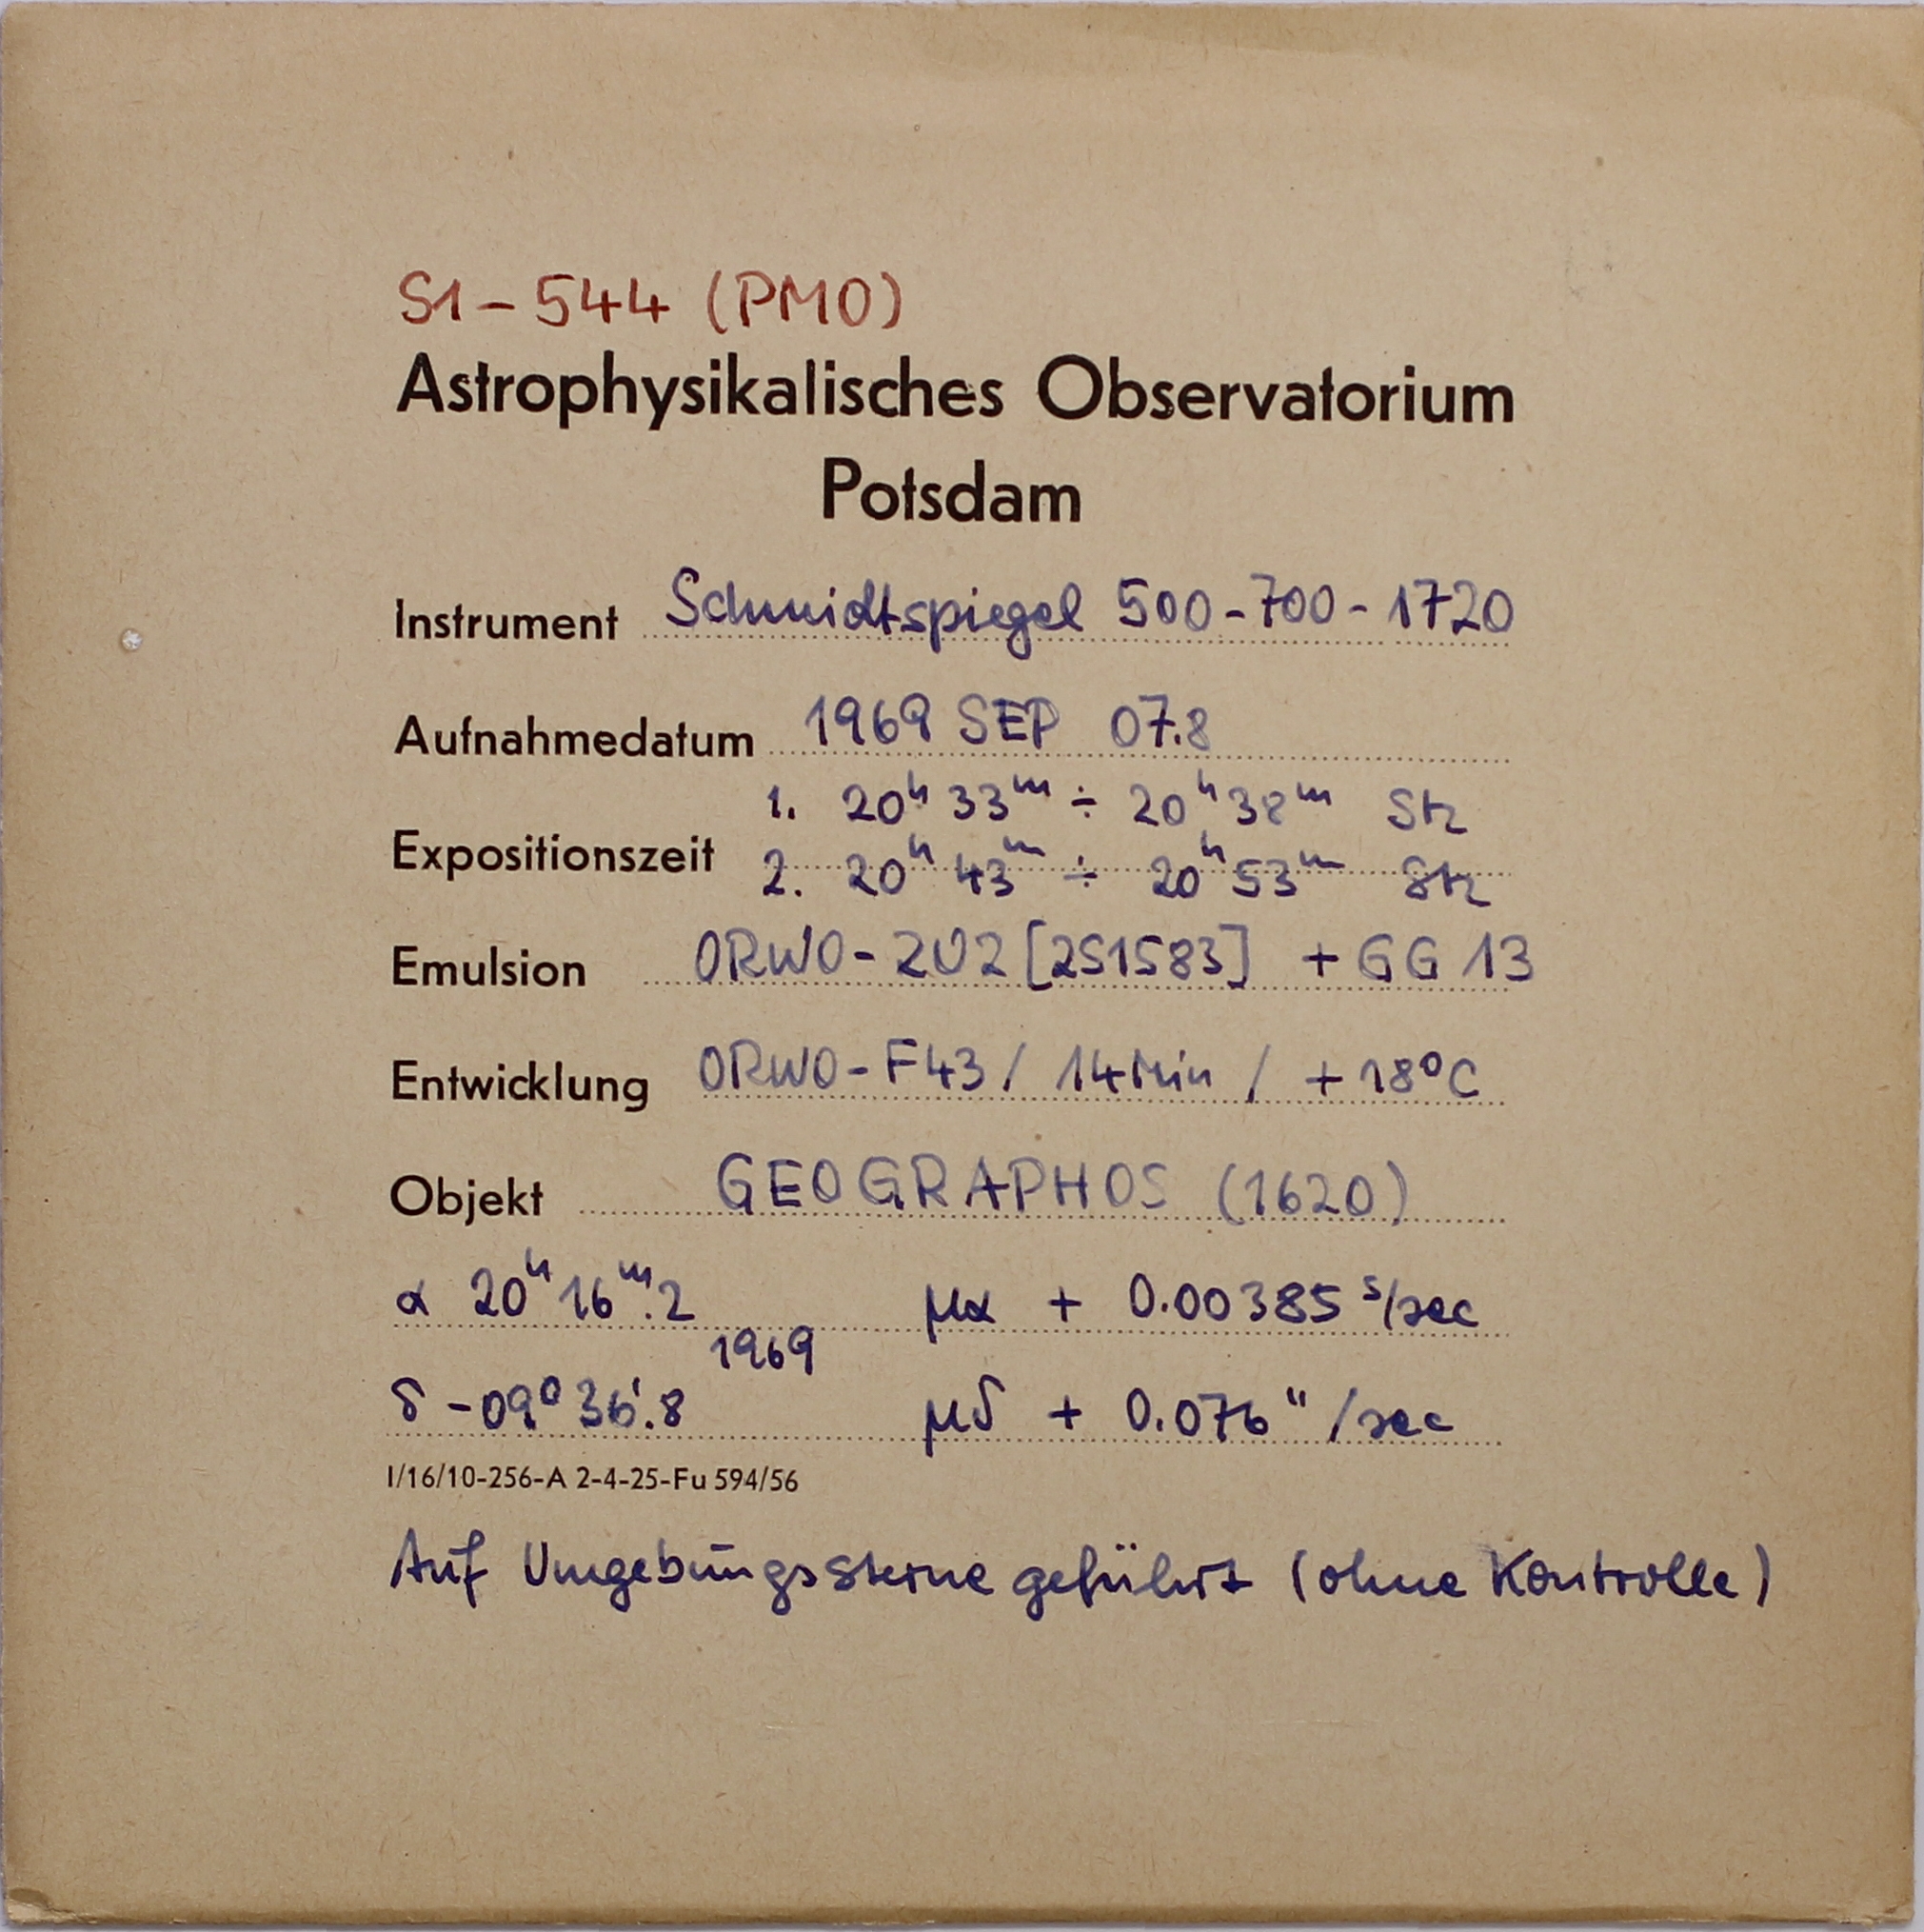 S1-544 (PMO)
Astrophysikalisches Observatorium
Potsdam
Instrument Schmidtspiegel 500-700-1720
Aufnahmedatum 1969 SEP 07.8
1. 20ʰ 33ᵐ ÷ 20ʰ 38ᵐ Stz
Expositionszeit 2. 20ʰ 43ᵐ ÷ 20ʰ 53ᵐ Stz
Emulsion ORWO-ZU2 [251583] + GG 13
Entwicklung ORWO-F43 / 14 Min / +18°C
Objekt GEOGRAPHOS (1620)
α 20ʰ 16ᵐ.2 μα + 0.00385 ˢ/sec
1969
δ -09° 36'.8 μδ + 0.076 "/sec
I/16/10-256-A 2-4-25-Fu 594/56
Auf Umgebungssterne geführt (ohne Kontrolle)